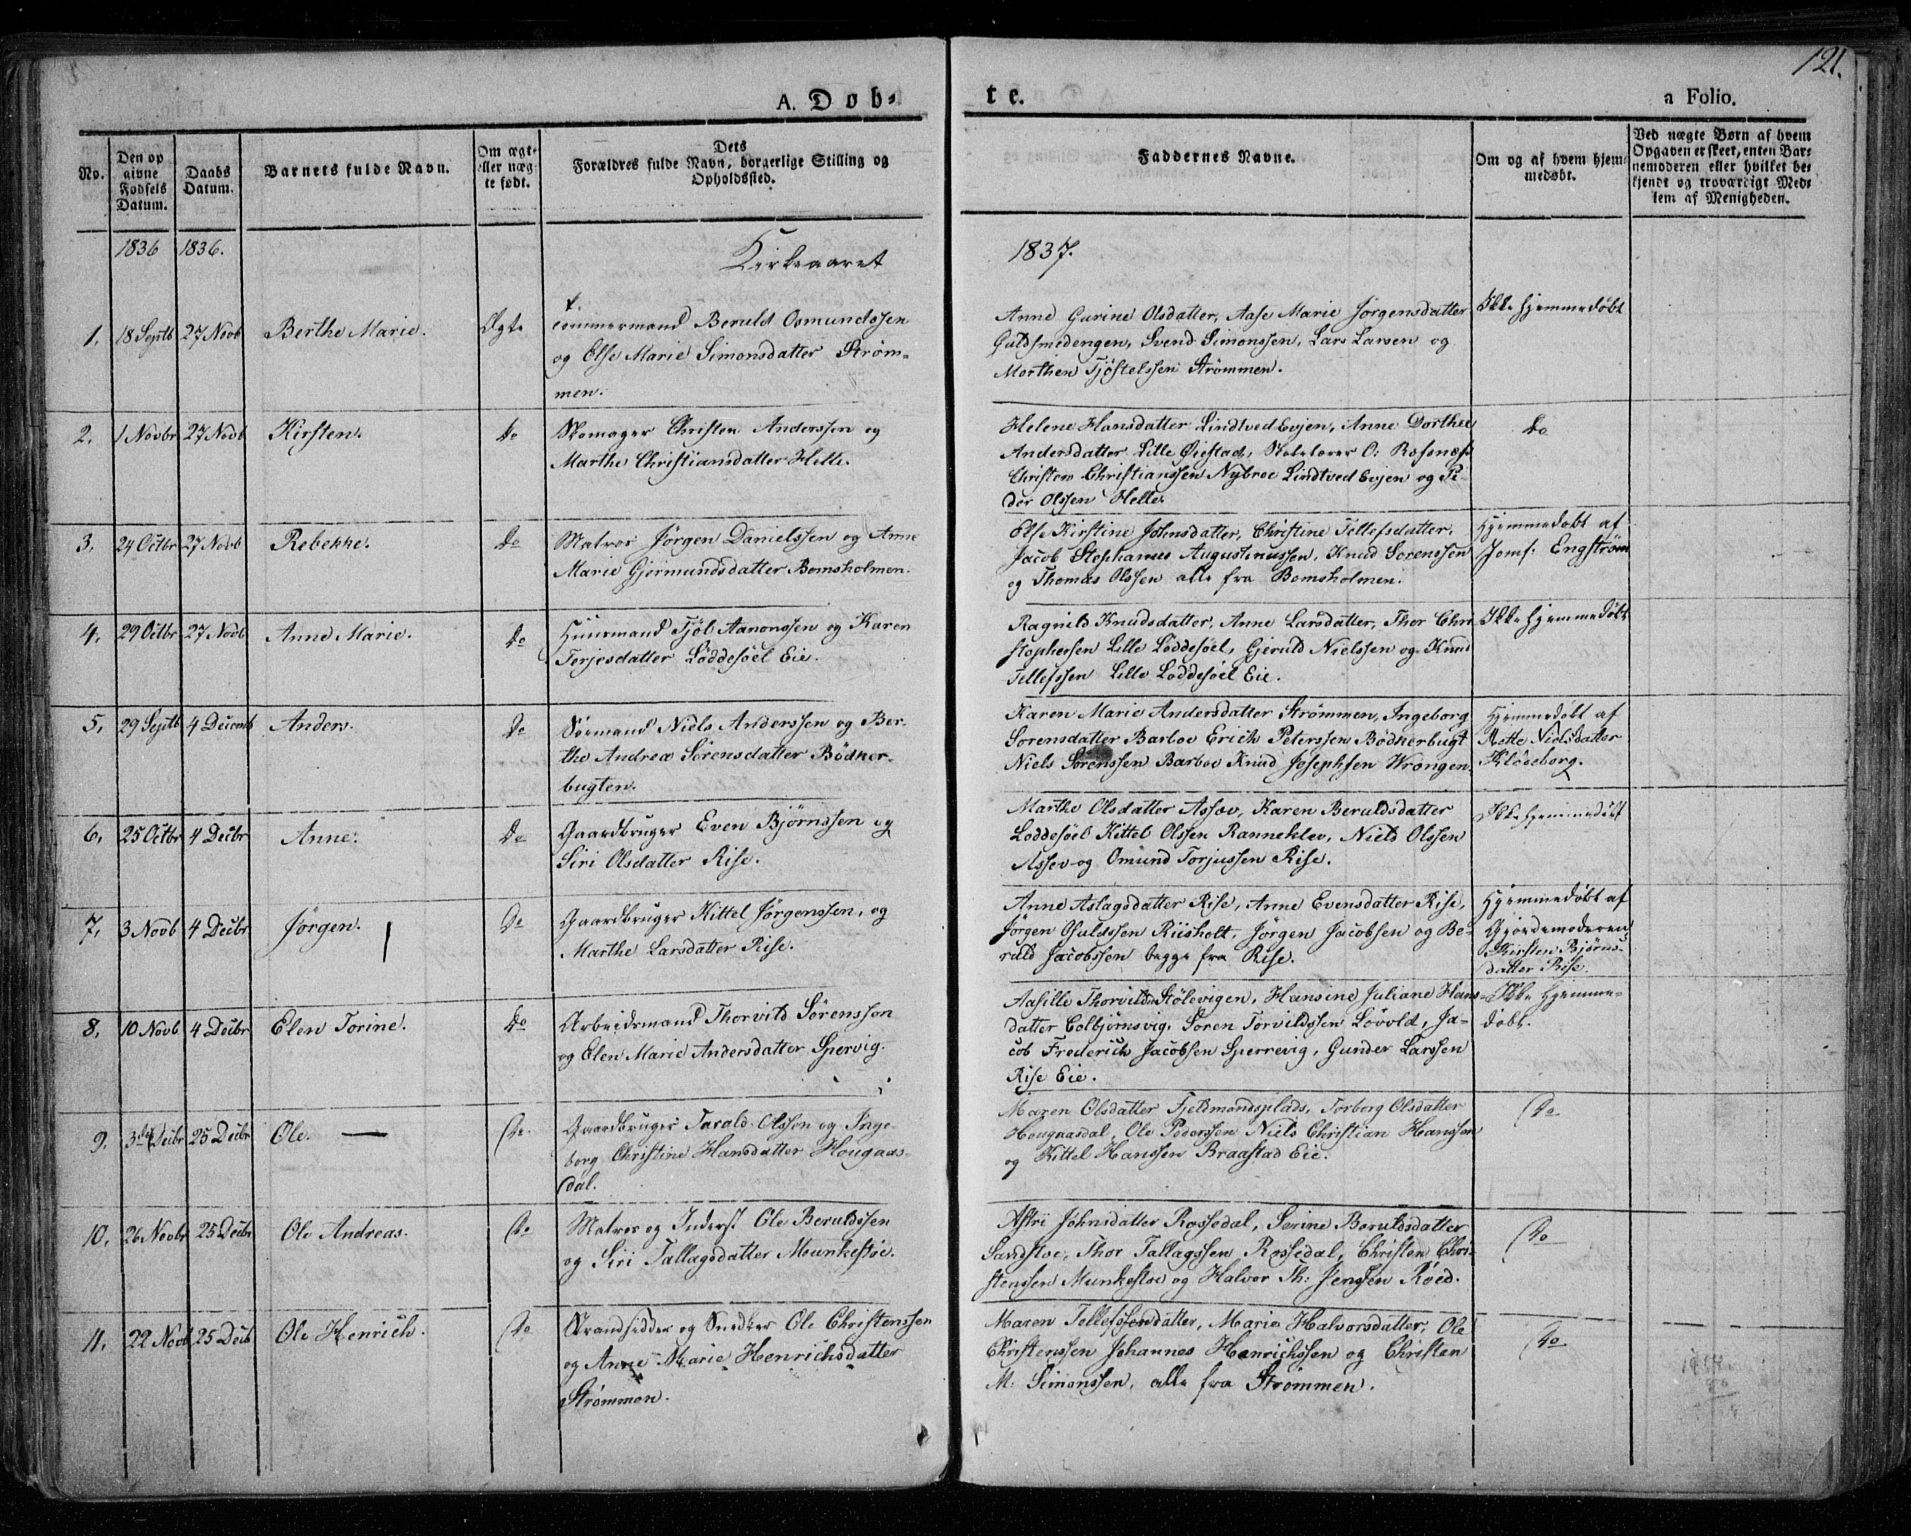 121.
A. Døb- te.
a Folio.
No.
Den op
givne
Fødsels
Datum.
Daabs
Datum.
Barnets fulde Navn.
Om ægte
eller næg-
te født.
Dets
Forældres fulde Navn, borgerlige Stilling og
Opholdssted.
Faddernes Navne.
Om og af hvem hjem-
medøbt.
Ved nægte Børn af hvem
Opgaven er skeet, enten Bar-
nemoderen eller hvilket be-
kjendt og troværdigt Med-
lem af Menigheden.
1836 1836.
Kirkeaaret 1837.
1. 18 Septb 27 Novb Berthe Marie. Ægte
Tømmermand Beruld Osmundssen
og Else Marie Simonsdatter Strøm-
men.
Anne Gurine Olsdatter, Aase Marie Jørgensdatter
Guldsmedengen, Svend Simonssen, Lars Larsen og
Morthen Tjøstelssen Strømmen.
Ikke hjemmedøbt
2. 1 Novbr 27 Novb Kirsten. Do
Skomager Christen Anderssen og
Marthe Christiansdatter Helle.
Helene Hansdatter Lindtved Evjen, Anne Dorthee
Andersdatter Lille Øiestad, Skolelærer O: Rosenæs
Christen Christianssen Nybroe Lindtved Evjen og Pe-
der Olssen Helle.
Do
3. 24 Octbr 27 Novb Rebekke. Do
Matros Jørgen Danielssen og Anne
Marie Gjermundsdatter Bomsholmen.
Else Kirstine Johnsdatter, Christine Tellefsdatter,
Jacob Stephanus Augustinussen, Knud Sorenssen
og Thomas Olssen alle fra Bomsholmen.
Hjemmedøbt af
Jomf: Engstrøm
4. 29 Octbr 27 Novb Anne Marie. Do
Huusmand Tjøl Aanonssen og Karen
Terjesdatter Løddesøel Eie.
Ragnild Knudsdatter, Anne Larsdatter, Thor Chri-
stophersen Lille Løddesøel, Gjeruld Nielssen og Knud
Tellefssen Lille Løddesøel Eie.
Ikke hjemmedøbt
5. 29 Septb 4 Decemb Anders. Do
Sømand Niels Anderssen og Ber-
the Andrea Sørensdatter Bødker-
bugten.
Karen Marie Andersdatter Strømmen, Ingeborg
Sorensdatter Barboe Erich Peterssen Bødkerbugt
Niels Sørenssen Barboe Knud Josephsen Wrangen.
Hjemmedøbt af
Mette Nielsdatter
Klødeborg.
6. 25 Octbr 4 Decbr Anne. Do
Gaardbruger Even Bjørnssen og
Siri Olsdatter Rise.
Marthe Olsdatter Assev, Karen Beruldsdatter
Loddesøel Kittel Olssen Ranneklev, Niels Olssen
Assev og Omund Torjussen Rise.
Ikke hjemmedøbt
7. 3 Novb 4 Decbr Jørgen. Do
Gaardbruger Kittel Jørgenssen, og
Marthe Larsdatter Rise.
Anne Aslagsdatter Rise, Anne Evensdatter Rise,
Jørgen Osuldssen Riisholt, Jørgen Jacobsen og Be-
ruld Jacobssen begge fra Rise.
Hjemmedøbt af
Gjordemoderen
Kirsten Bjørns-
datter Rise.
8. 10 Novb 4 Decbr Elen Torine. Do
Arbeidsmand Thorvild Sørenssen
og Elen Marie Andersdatter Spervig.
Aasille Thorvilds Stølevigen, Hansine Juliane Hans-
datter Colbjørnsvig, Soren Torvildssen Løvold, Ja-
cob Frederich Jacobsen Sperrevig, Gunder Larssen
Rise Eie.
Ikke hjemme-
døbt.
9. 3die Decbr 25 Decbr Ole. Do.
Gaardbruger Tarald Olssen og Inge
borg Christine Hansdatter Hougaas-
dal.
Maren Olsdatter Fjeldmandsplads, Torborg Olsdatter
Hougaasdal, Ole Pederssen Niels Christian Hanssen
og Kittel Hanssen Braastad Eie.
Do
10. 26 Novbr 25 Decbr Ole Andreas. Do
Matros og Inderst Ole Beruldssen
og Siri Tallagsdatter Munkestøe.
Astri Johnsdatter Rossedal, Serine Beruldsdatter
Sandstøe, Thor Tallagssen Rossedal, Christen Chri-
stenssen Munkestøe og Halvor Th: Jenssen Røed.
Do
11. 22 Novb 25 Decb Ole Henrich. Do
Strandsidder og Snedker Ole Christenssen
og Anne Marie Henrichsdatter
Strømmen.
Maren Tellefsdatter, Marie Halvorsdatter, Ole
Christenssen Johannes Henrichssen og Christen
M: Simonssen, alle fra Strømmen.
Do